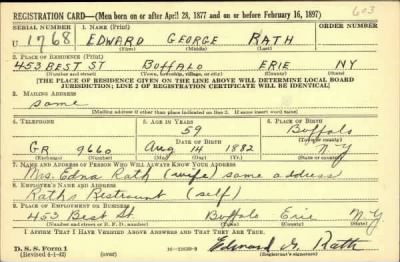 603
REGISTRATION CARD—(Men born on or after April 28, 1877 and on or before February 16, 1897)
SERIAL NUMBER 1. NAME (Print)
U 1768 EDWARD GEORGE RATH
(First) (Middle) (Last)
2. PLACE OF RESIDENCE (Print)
453 BEST ST BUFFALO ERIE NY
(Number and street) (Town, township, village, or city) (County) (State)
[THE PLACE OF RESIDENCE GIVEN ON THE LINE ABOVE WILL DETERMINE LOCAL BOARD
JURISDICTION; LINE 2 OF REGISTRATION CERTIFICATE WILL BE IDENTICAL]
3. MAILING ADDRESS
Same
[Mailing address if other than place indicated on line 2. If same insert word same]
4. TELEPHONE 5. AGE IN YEARS 6. PLACE OF BIRTH
59 Buffalo
DATE OF BIRTH (Town or county)
GR 9660 Aug 14 1882 N.Y
(Exchange) (Number) (Mo.) (Day) (Yr.) (State or country)
7. NAME AND ADDRESS OF PERSON WHO WILL ALWAYS KNOW YOUR ADDRESS
Mrs. Edna Rath (wife) same address
8. EMPLOYER'S NAME AND ADDRESS
Raths Restraunt (self)
9. PLACE OF EMPLOYMENT OR BUSINESS
453 Best St. Buffalo Erie N.Y
(Number and street or R. F. D. number) (Town) (County) (State)
I AFFIRM THAT I HAVE VERIFIED ABOVE ANSWERS AND THAT THEY ARE TRUE.
D. S. S. Form 1
(Revised 4-1-42) (over) Edward G. Rath
(Registrant's signature)